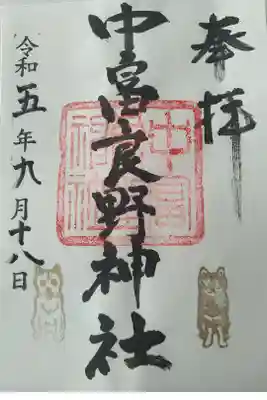 奉拝
中富良野神社
令和五年九月十八日